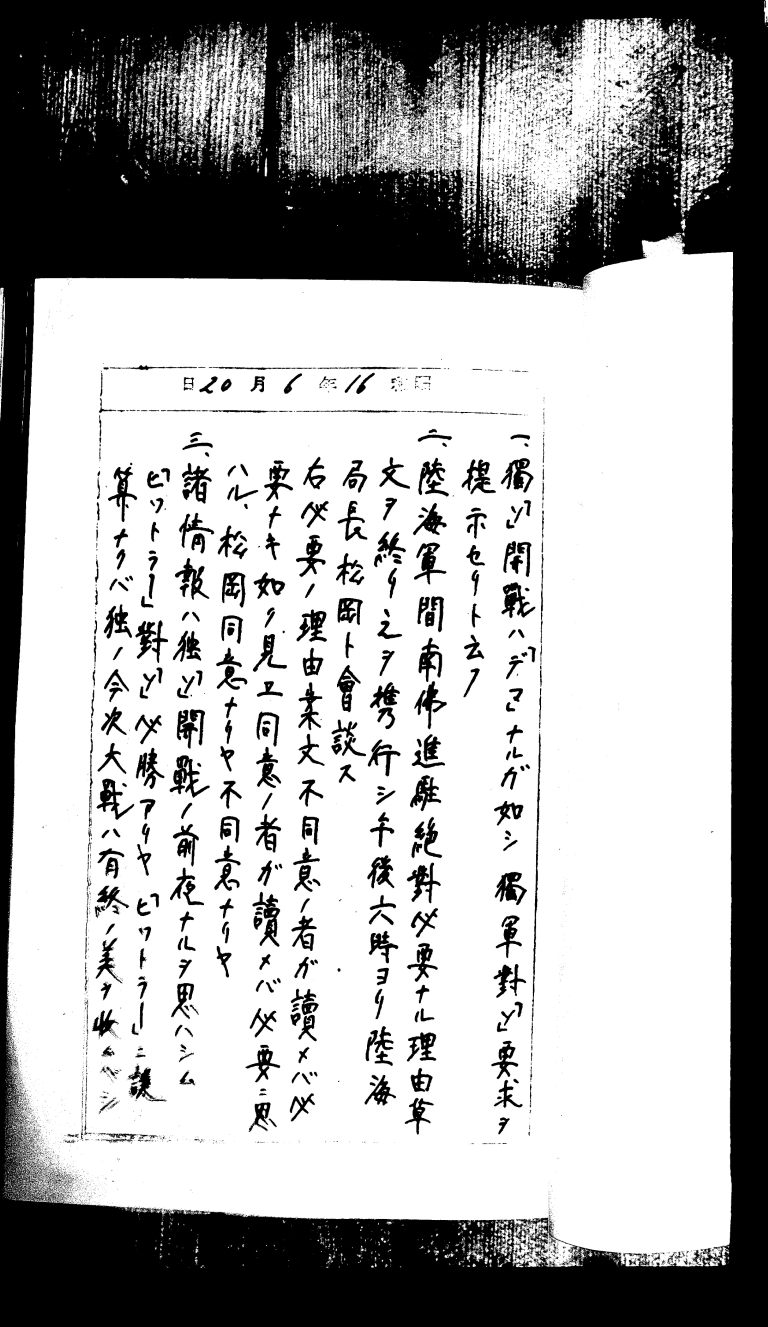 昭和16年6月20日
一、獨「ソ」開戰ハ「デマ」ナルガ如シ 獨軍對「ソ」要求ヲ
提示セリト云フ
二、陸海軍間南佛進駐絶對必要ナル理由草
文ヲ終リ之ヲ携行シ午後六時ヨリ陸海
局長松岡ト會談ス
右必要ノ理由案文不同意ノ者ガ讀メバ必
要ナキ如ク見エ同意ノ者ガ讀メバ必要ニ思
ハル、松岡同意ナリヤ不同意ナリヤ
三、諸情報ハ独「ソ」開戰ノ前夜ナルヲ思ハシム
「ヒットラー」對「ソ」必勝アリヤ「ヒットラー」ニ誤
算ナクバ独ノ今次大戰ハ有終ノ美ヲ收ムベシ